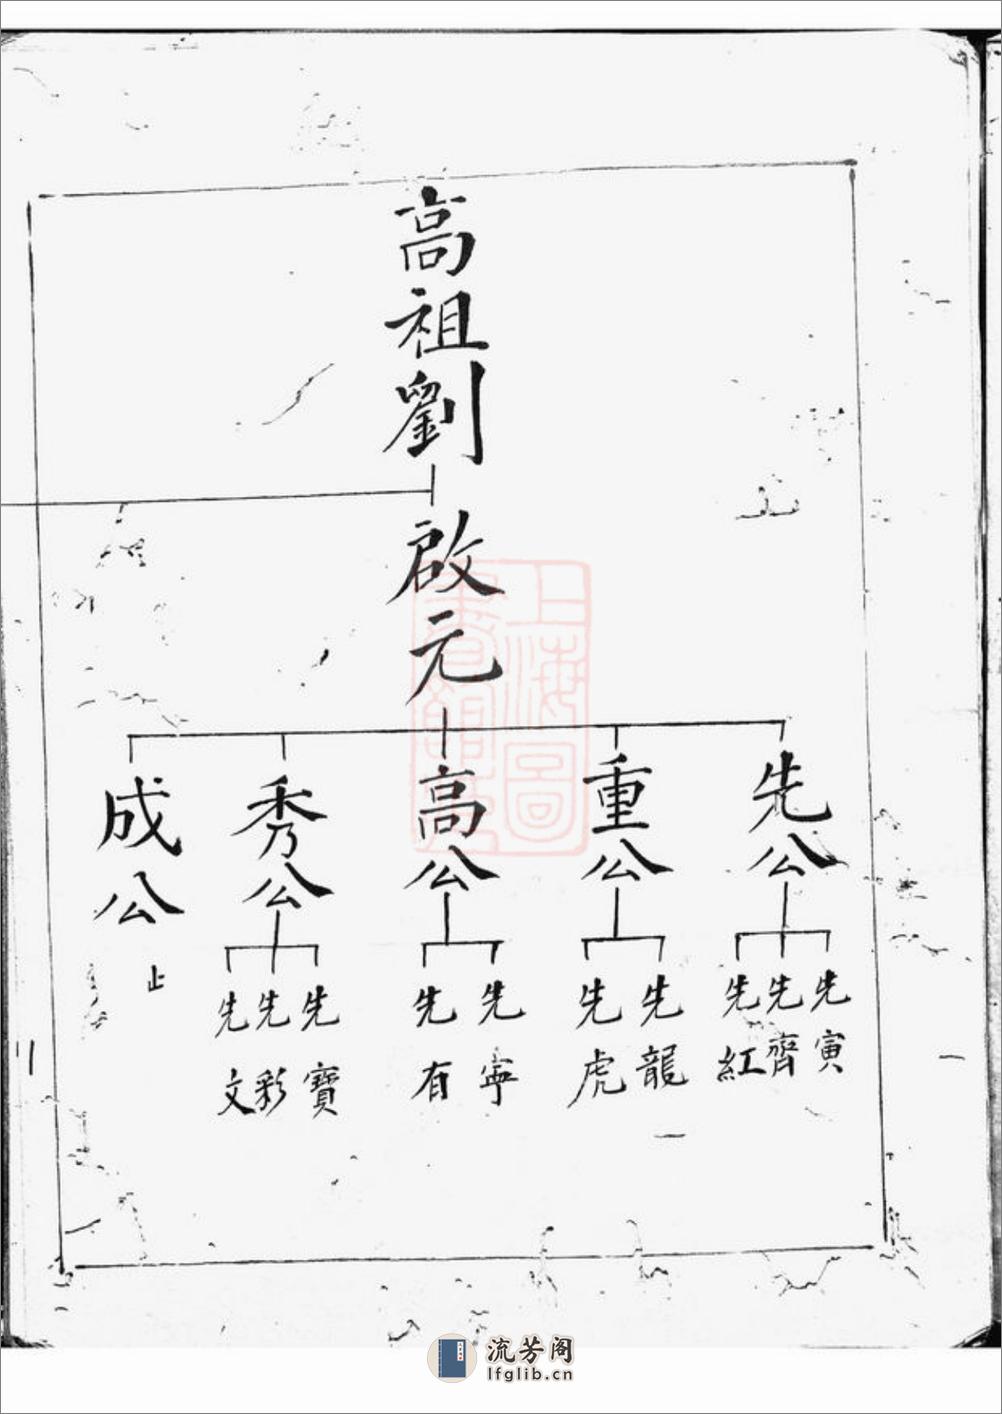 高祖劉
啟元
先公
重公
高公
秀公
成公
止
先寅
先齊
先紅
先龍
先虎
先寧
先有
先寶
先彩
先文
上海圖
書館藏
流芳阁
lfglib.cn